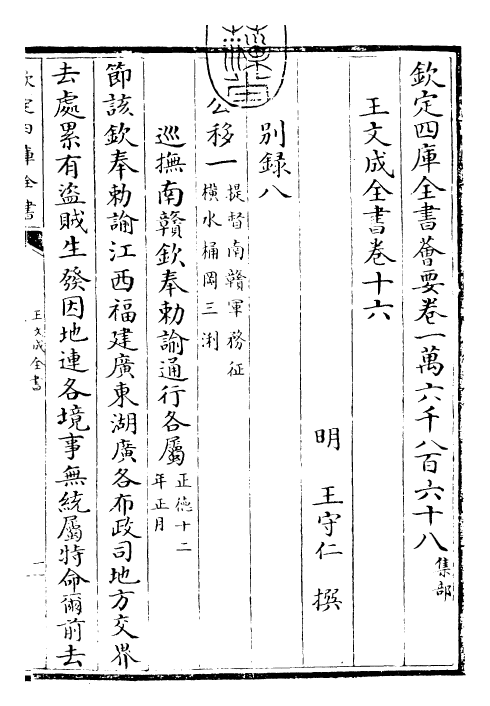 欽定四庫全書薈要卷一萬六千八百六十八集部
王文成全書卷十六
明 王守仁 撰
別錄八
公移一提督南贛軍務征
橫水桶岡三浰
巡撫南贛欽奉勅諭通行各屬正德十二
年正月
節該欽奉勅諭江西福建廣東湖廣各布政司地方交界
去處累有盜賊生發因地連各境事無統屬特命爾前去
欽定四庫全書
王文成全書